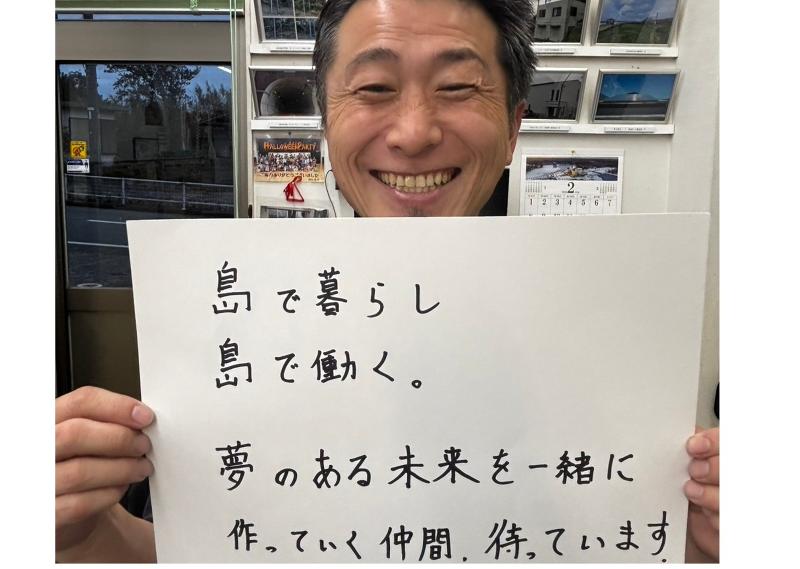 島で暮らし
島で働く。
夢のある未来を一緒に
作っていく仲間、待っています
HALLOWEEN PARTY
2
1 2 3 4 5 6 7